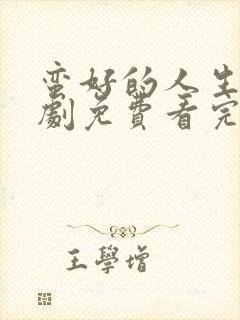 蛮好的人生
劇免費看完
王學增